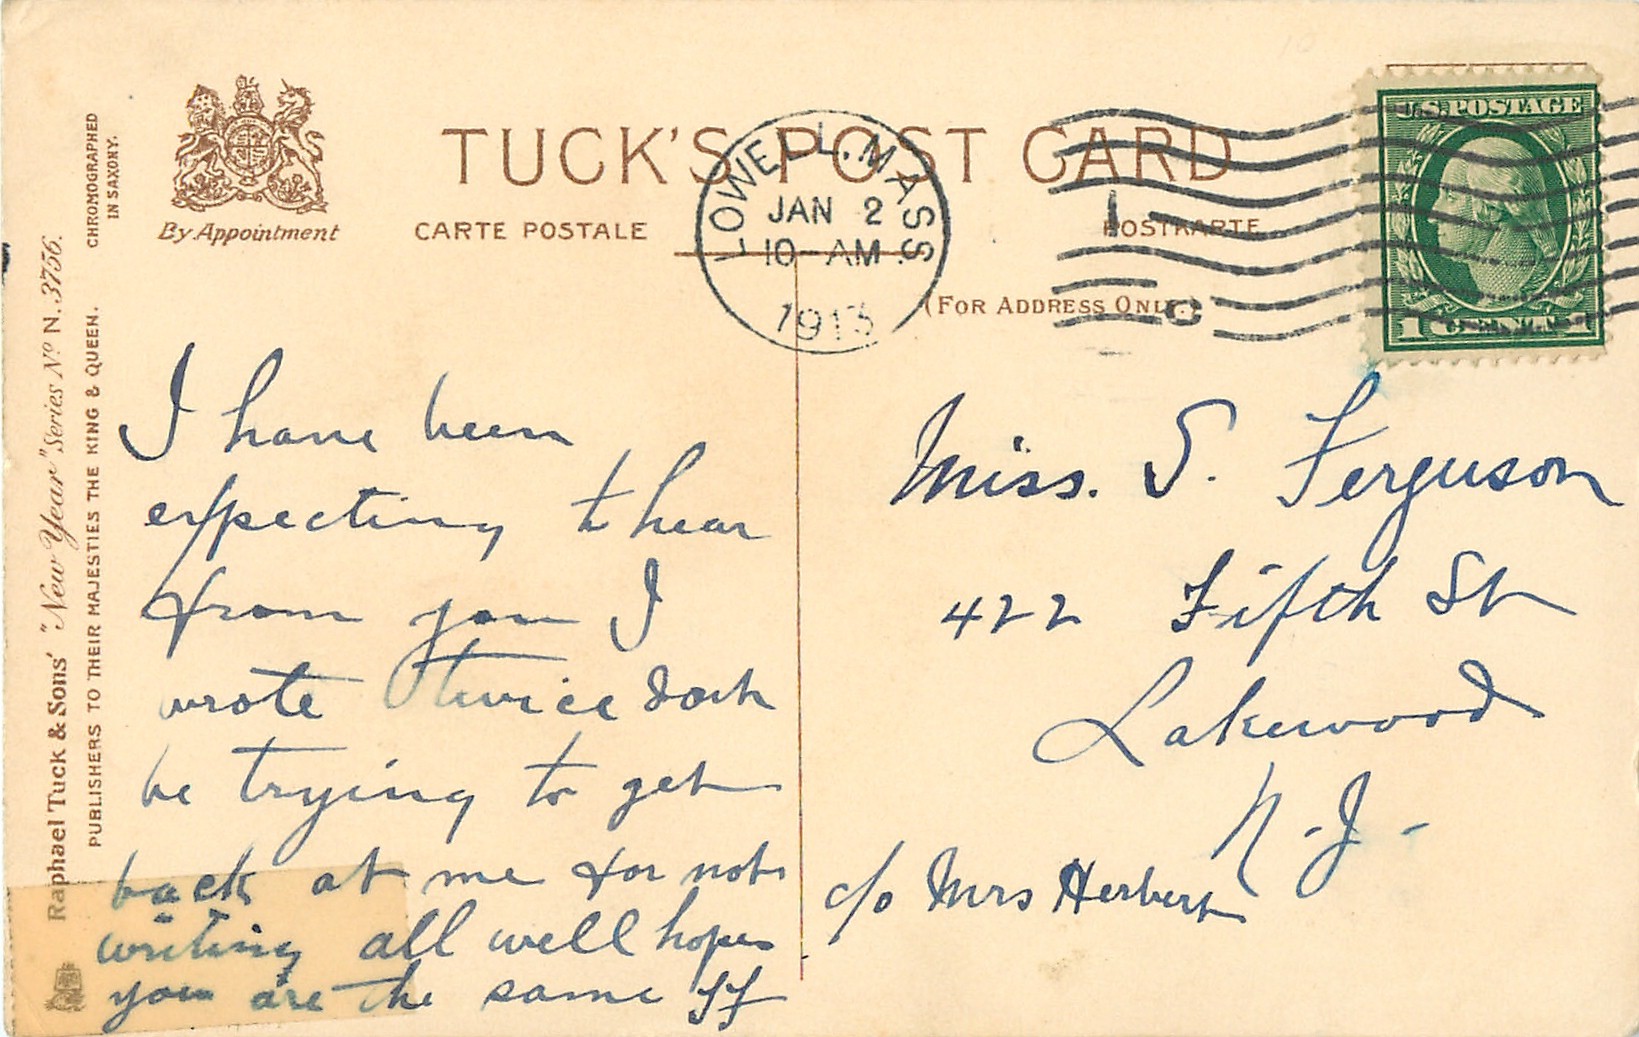 CHROMOGRAPHED
IN SAXONY.
Raphael Tuck & Sons' "New Year" Series No N. 3756.
PUBLISHERS TO THEIR MAJESTIES THE KING & QUEEN.
By Appointment
TUCK'S POST CARD
CARTE POSTALE
POSTKARTE
(FOR ADDRESS ONLY.)
LOWELL. MASS.
JAN 2
10-AM
1913
U.S. POSTAGE
1 CENT 1
I have been
expecting to hear
from you I
wrote twice dont
be trying to get
back at me for not
writing all well hope
you are the same
Miss. S. Ferguson
422 Fifth St
Lakewood
N.J.
c/o Mrs Herbert